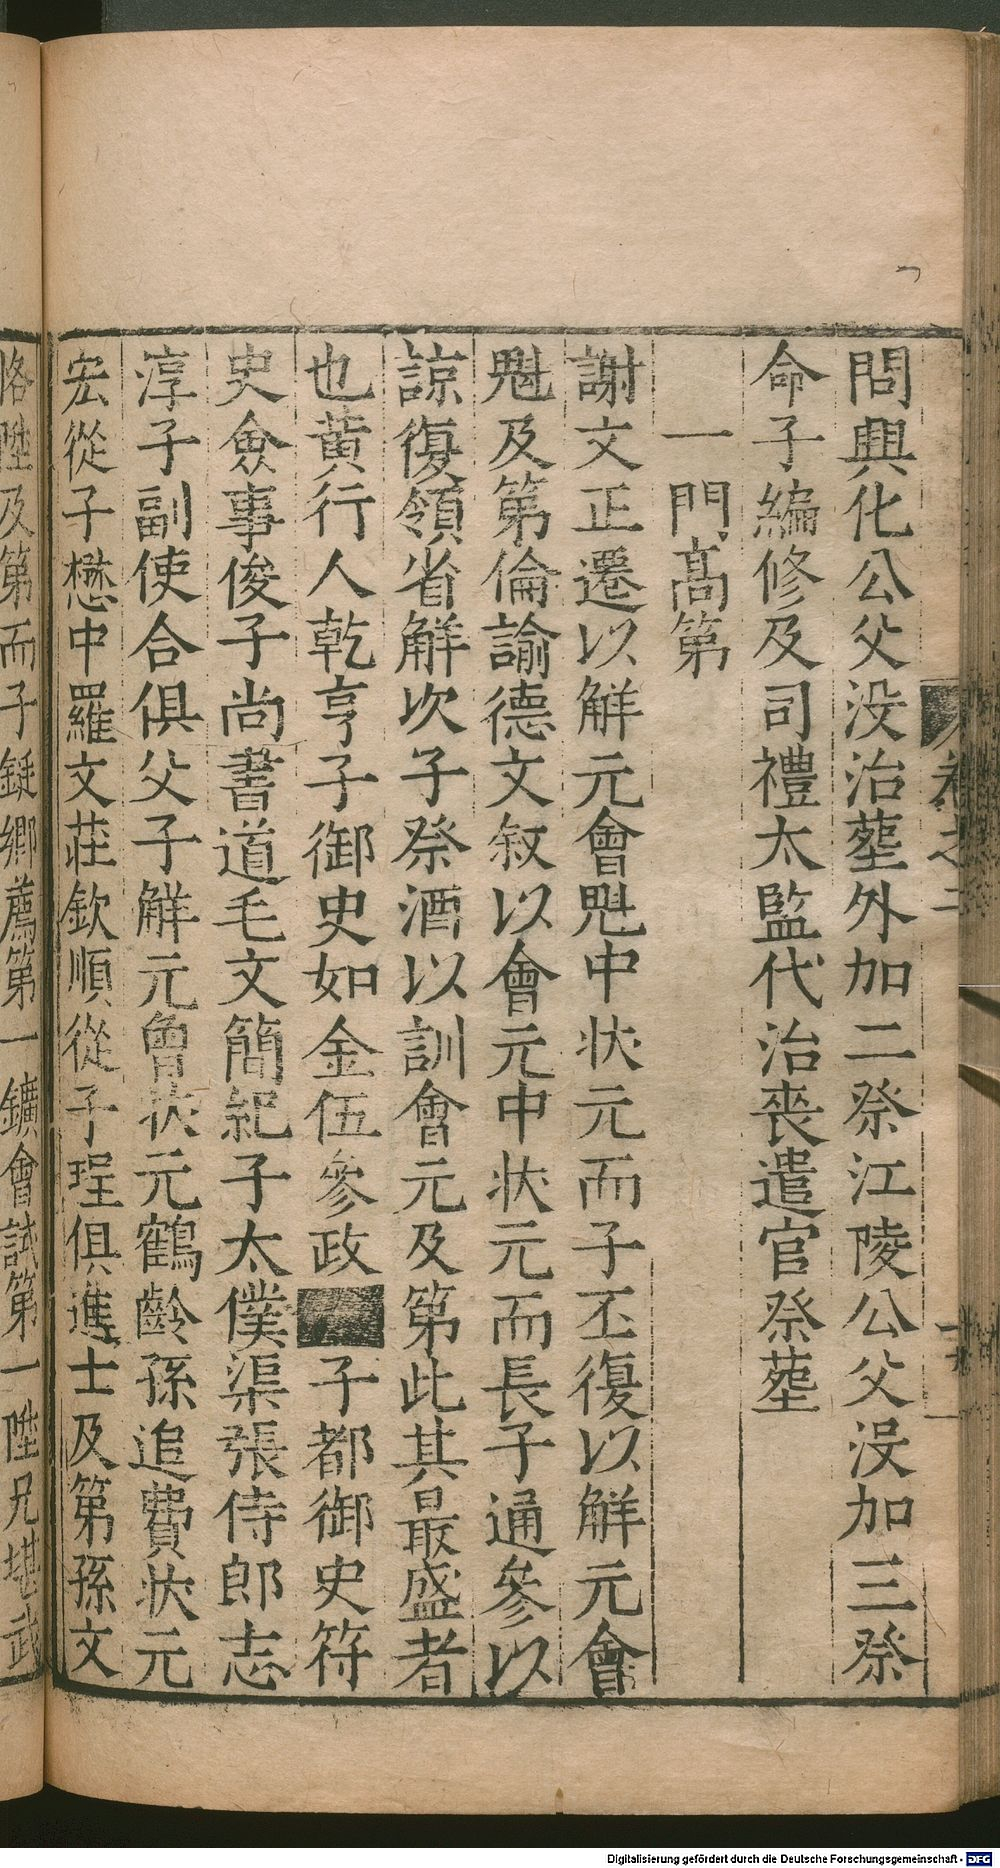 問興化公父没治塟外加二祭江陵公父没加三祭
命子編修及司禮太監代治喪遣官祭塟
一門高第
謝文正遷以解元會魁中状元而子丕復以解元會
魁及第倫諭德文敘以會元中状元而長子通參以
諒復領省解次子祭酒以訓會元及第此其最盛者
也黄行人乾亨子御史如金伍參政 子都御史符
史僉事俊子尚書道毛文簡紀子太僕渠張侍郎志
淳子副使合俱父子解元曾状元鶴齡孫追費状元
宏從子懋中羅文莊欽順從子珵俱進士及第孫文
恪陞及第而子鋌鄉薦第一鑛會試第一陞兄堪武
卷之二
Digitalisierung gefördert durch die Deutsche Forschungsgemeinschaft - DFG